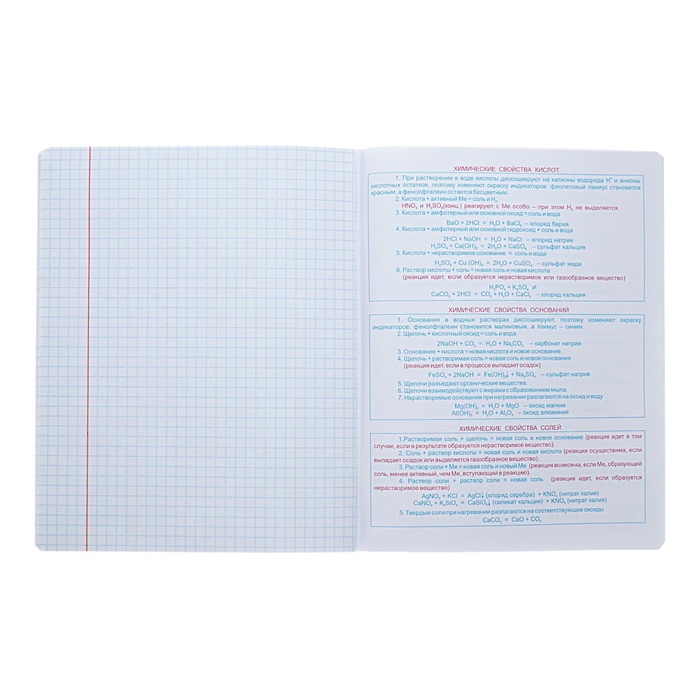 ХИМИЧЕСКИЕ СВОЙСТВА КИСЛОТ
1. При растворении в воде кислоты диссоциируют на катионы водорода H⁺ и анионы
кислотных остатков, поэтому изменяют окраску индикаторов: фиолетовый лакмус становится
красным, а фенолфталеин остается бесцветным.
2. Кислота + активный Me = соль и H₂
HNO₃ и H₂SO₄(конц.) реагируют с Me особо – при этом H₂ не выделяется.
3. Кислота + амфотерный или основной оксид = соль и вода
BaO + 2HCl = H₂O + BaCl₂ – хлорид бария
4. Кислота + амфотерный или основной гидроксид + соль и вода
2HCl + NaOH = H₂O + NaCl – хлорид натрия
H₂SO₄ + Ca(OH)₂ = 2H₂O + CaSO₄ – сульфат кальция
5. Кислота + нерастворимое основание = соль и вода
H₂SO₄ + Cu (OH)₂ = 2H₂O + CuSO₄ – сульфат меди
6. Раствор кислоты + соль = новая соль и новая кислота
(реакция идет, если образуется нерастворимое или газообразное вещество)
H₃PO₄ + K₂SO₄ ≠
CaCO₃ + 2HCl = CO₂ + H₂O + CaCl₂ – хлорид кальция
ХИМИЧЕСКИЕ СВОЙСТВА ОСНОВАНИЙ
1. Основания в водных растворах диссоциируют, поэтому изменяют окраску
индикаторов: фенолфталеин становится малиновым, а лакмус – синим.
2. Щелочь + кислотный оксид = соль и вода
2NaOH + CO₂ = H₂O + Na₂CO₃ – карбонат натрия
3. Основание + кислота = новая кислота и новое основание.
4. Щелочь + растворимая соль = новая соль и новое основание
(реакция идет, если в процессе выпадает осадок)
FeSO₄ + 2NaOH = Fe(OH)₂↓ + Na₂SO₄ – сульфат натрия
5. Щелочи разъедают органические вещества.
6. Щелочи взаимодействуют с жирами с образованием мыла.
7. Нерастворимые основания при нагревании разлагаются на оксид и воду
Mg(OH)₂ = H₂O + MgO – оксид магния
Al(OH)₃ = H₂O + Al₂O₃ – оксид алюминия
ХИМИЧЕСКИЕ СВОЙСТВА СОЛЕЙ
1.Растворимая соль + щелочь = новая соль и новое основание (реакция идет в том
случае, если в результате образуется нерастворимое вещество).
2. Соль + раствор кислоты = новая соль и новая кислота (реакция осуществима, если
выпадает осадок или выделяется газообразное вещество).
3. Раствор соли + Me = новая соль и новый Me (реакция возможна, если Me, образующий
соль, менее активный, чем Me, вступающий в реакцию).
4. Раствор соли + раствор соли = новая соль (реакция идет, если образуется
нерастворимое вещество)
AgNO₃ + KCl = AgCl↓ (хлорид серебра) + KNO₃ (нитрат калия)
CaNO₃ + K₂SiO₃ = CaSiO₃↓ (силикат кальция) + KNO₃ (нитрат калия)
5. Твердые соли при нагревании разлагаются на соответствующие оксиды
CaCO₃ = CaO + CO₂